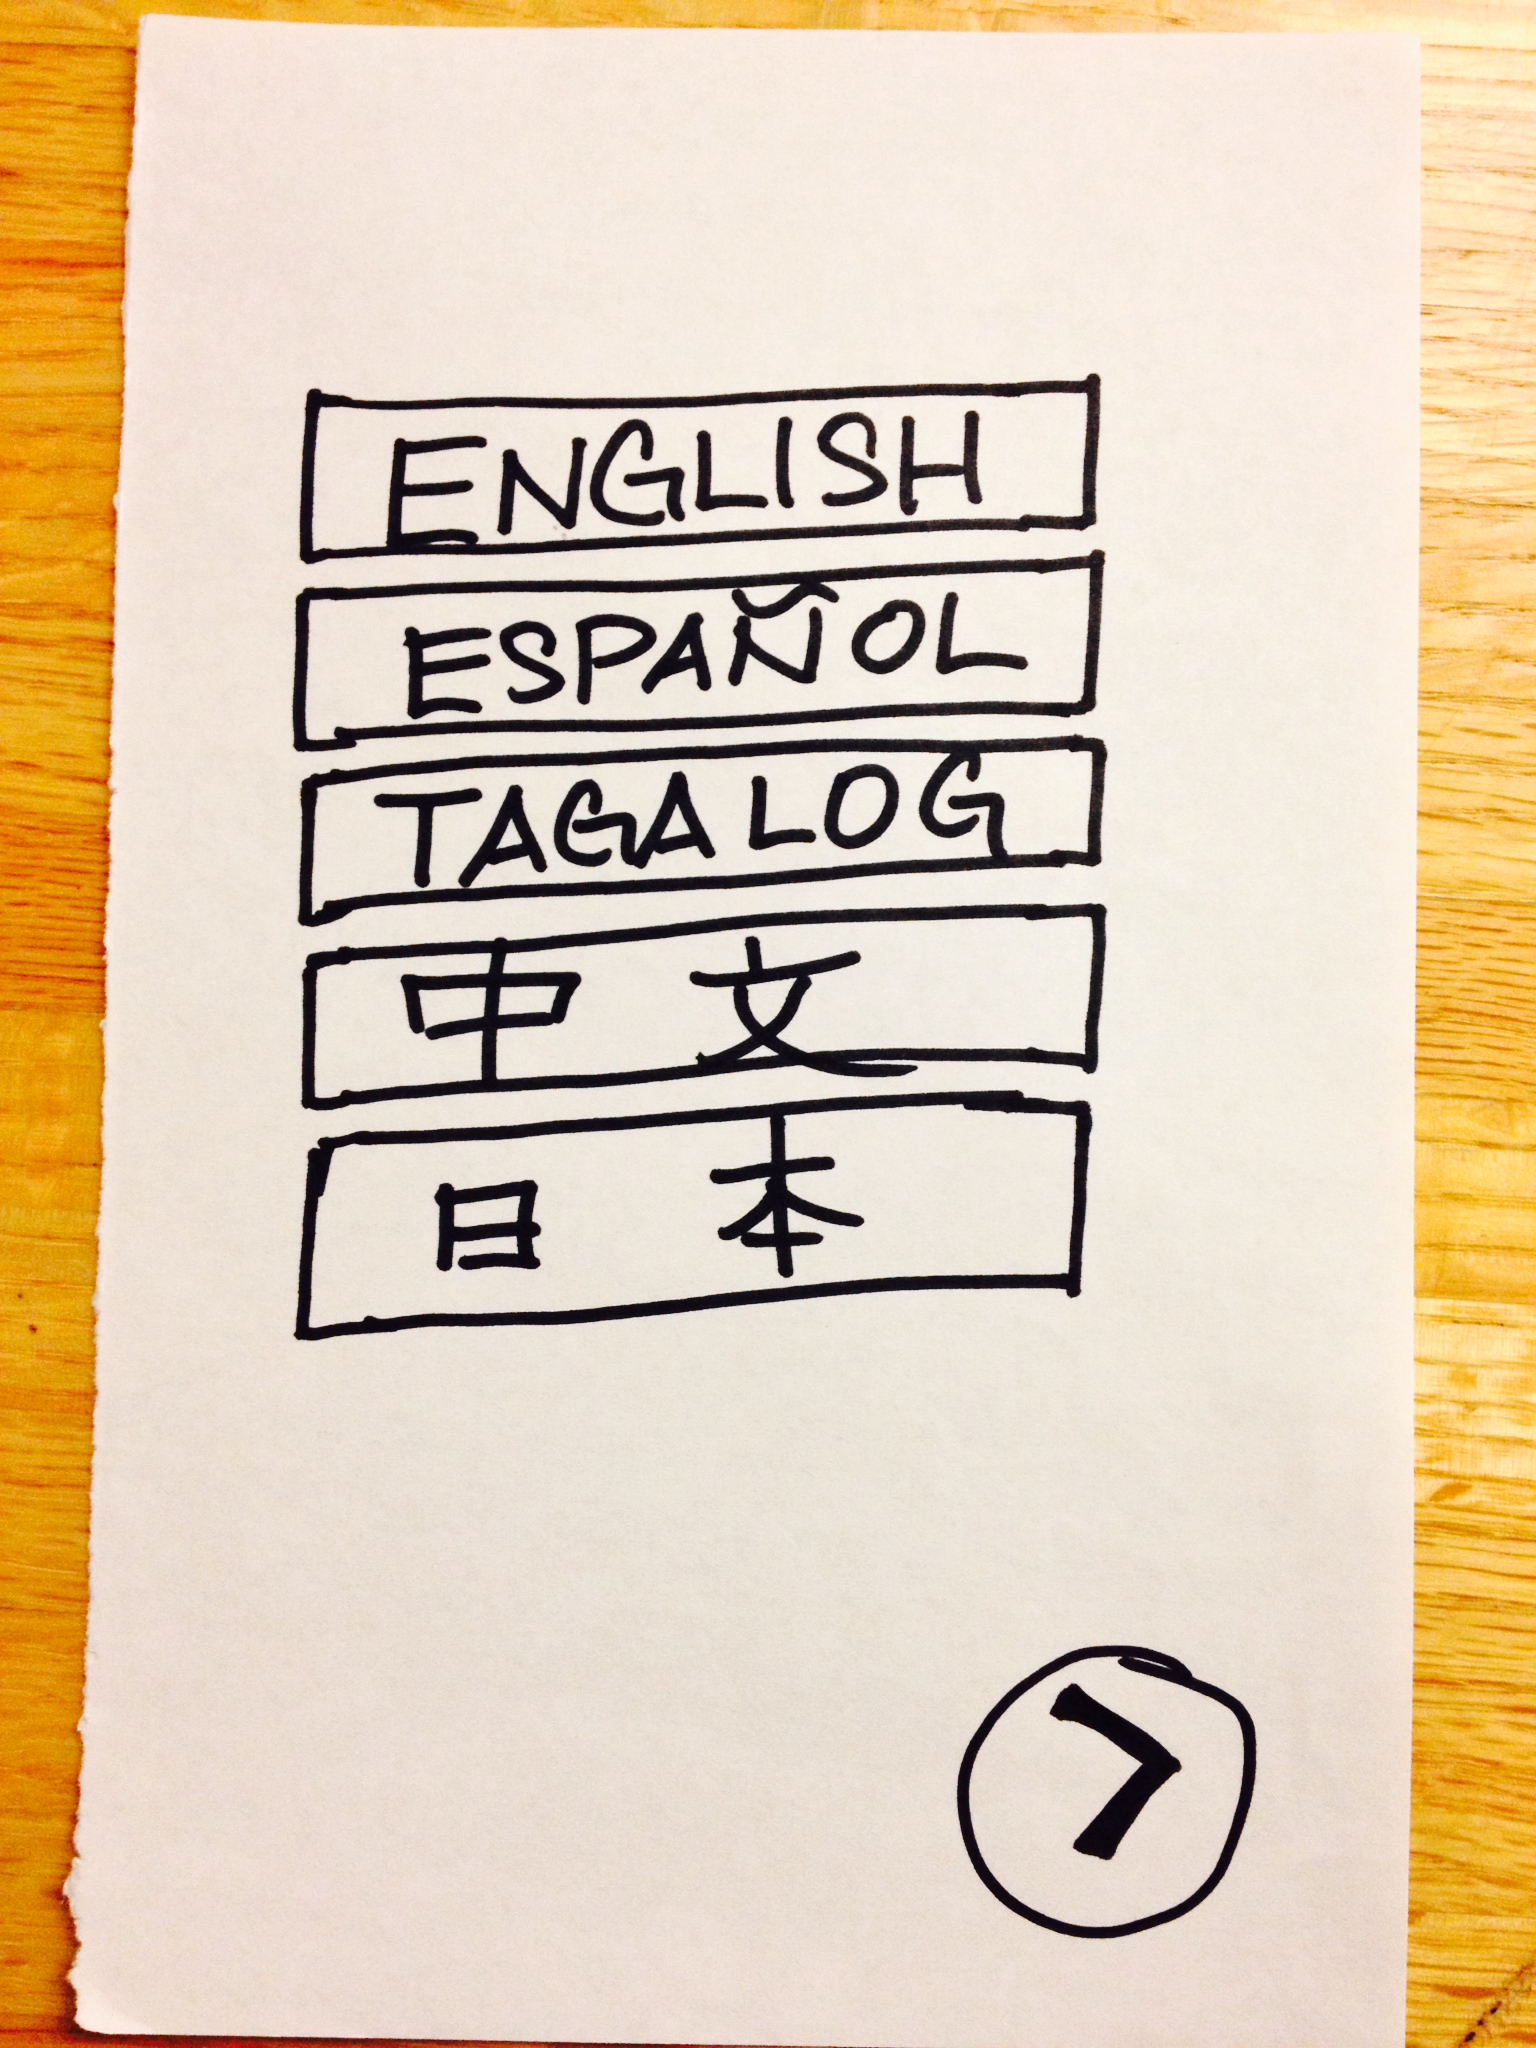 ENGLISH
ESPAÑOL
TAGALOG
中文
日本